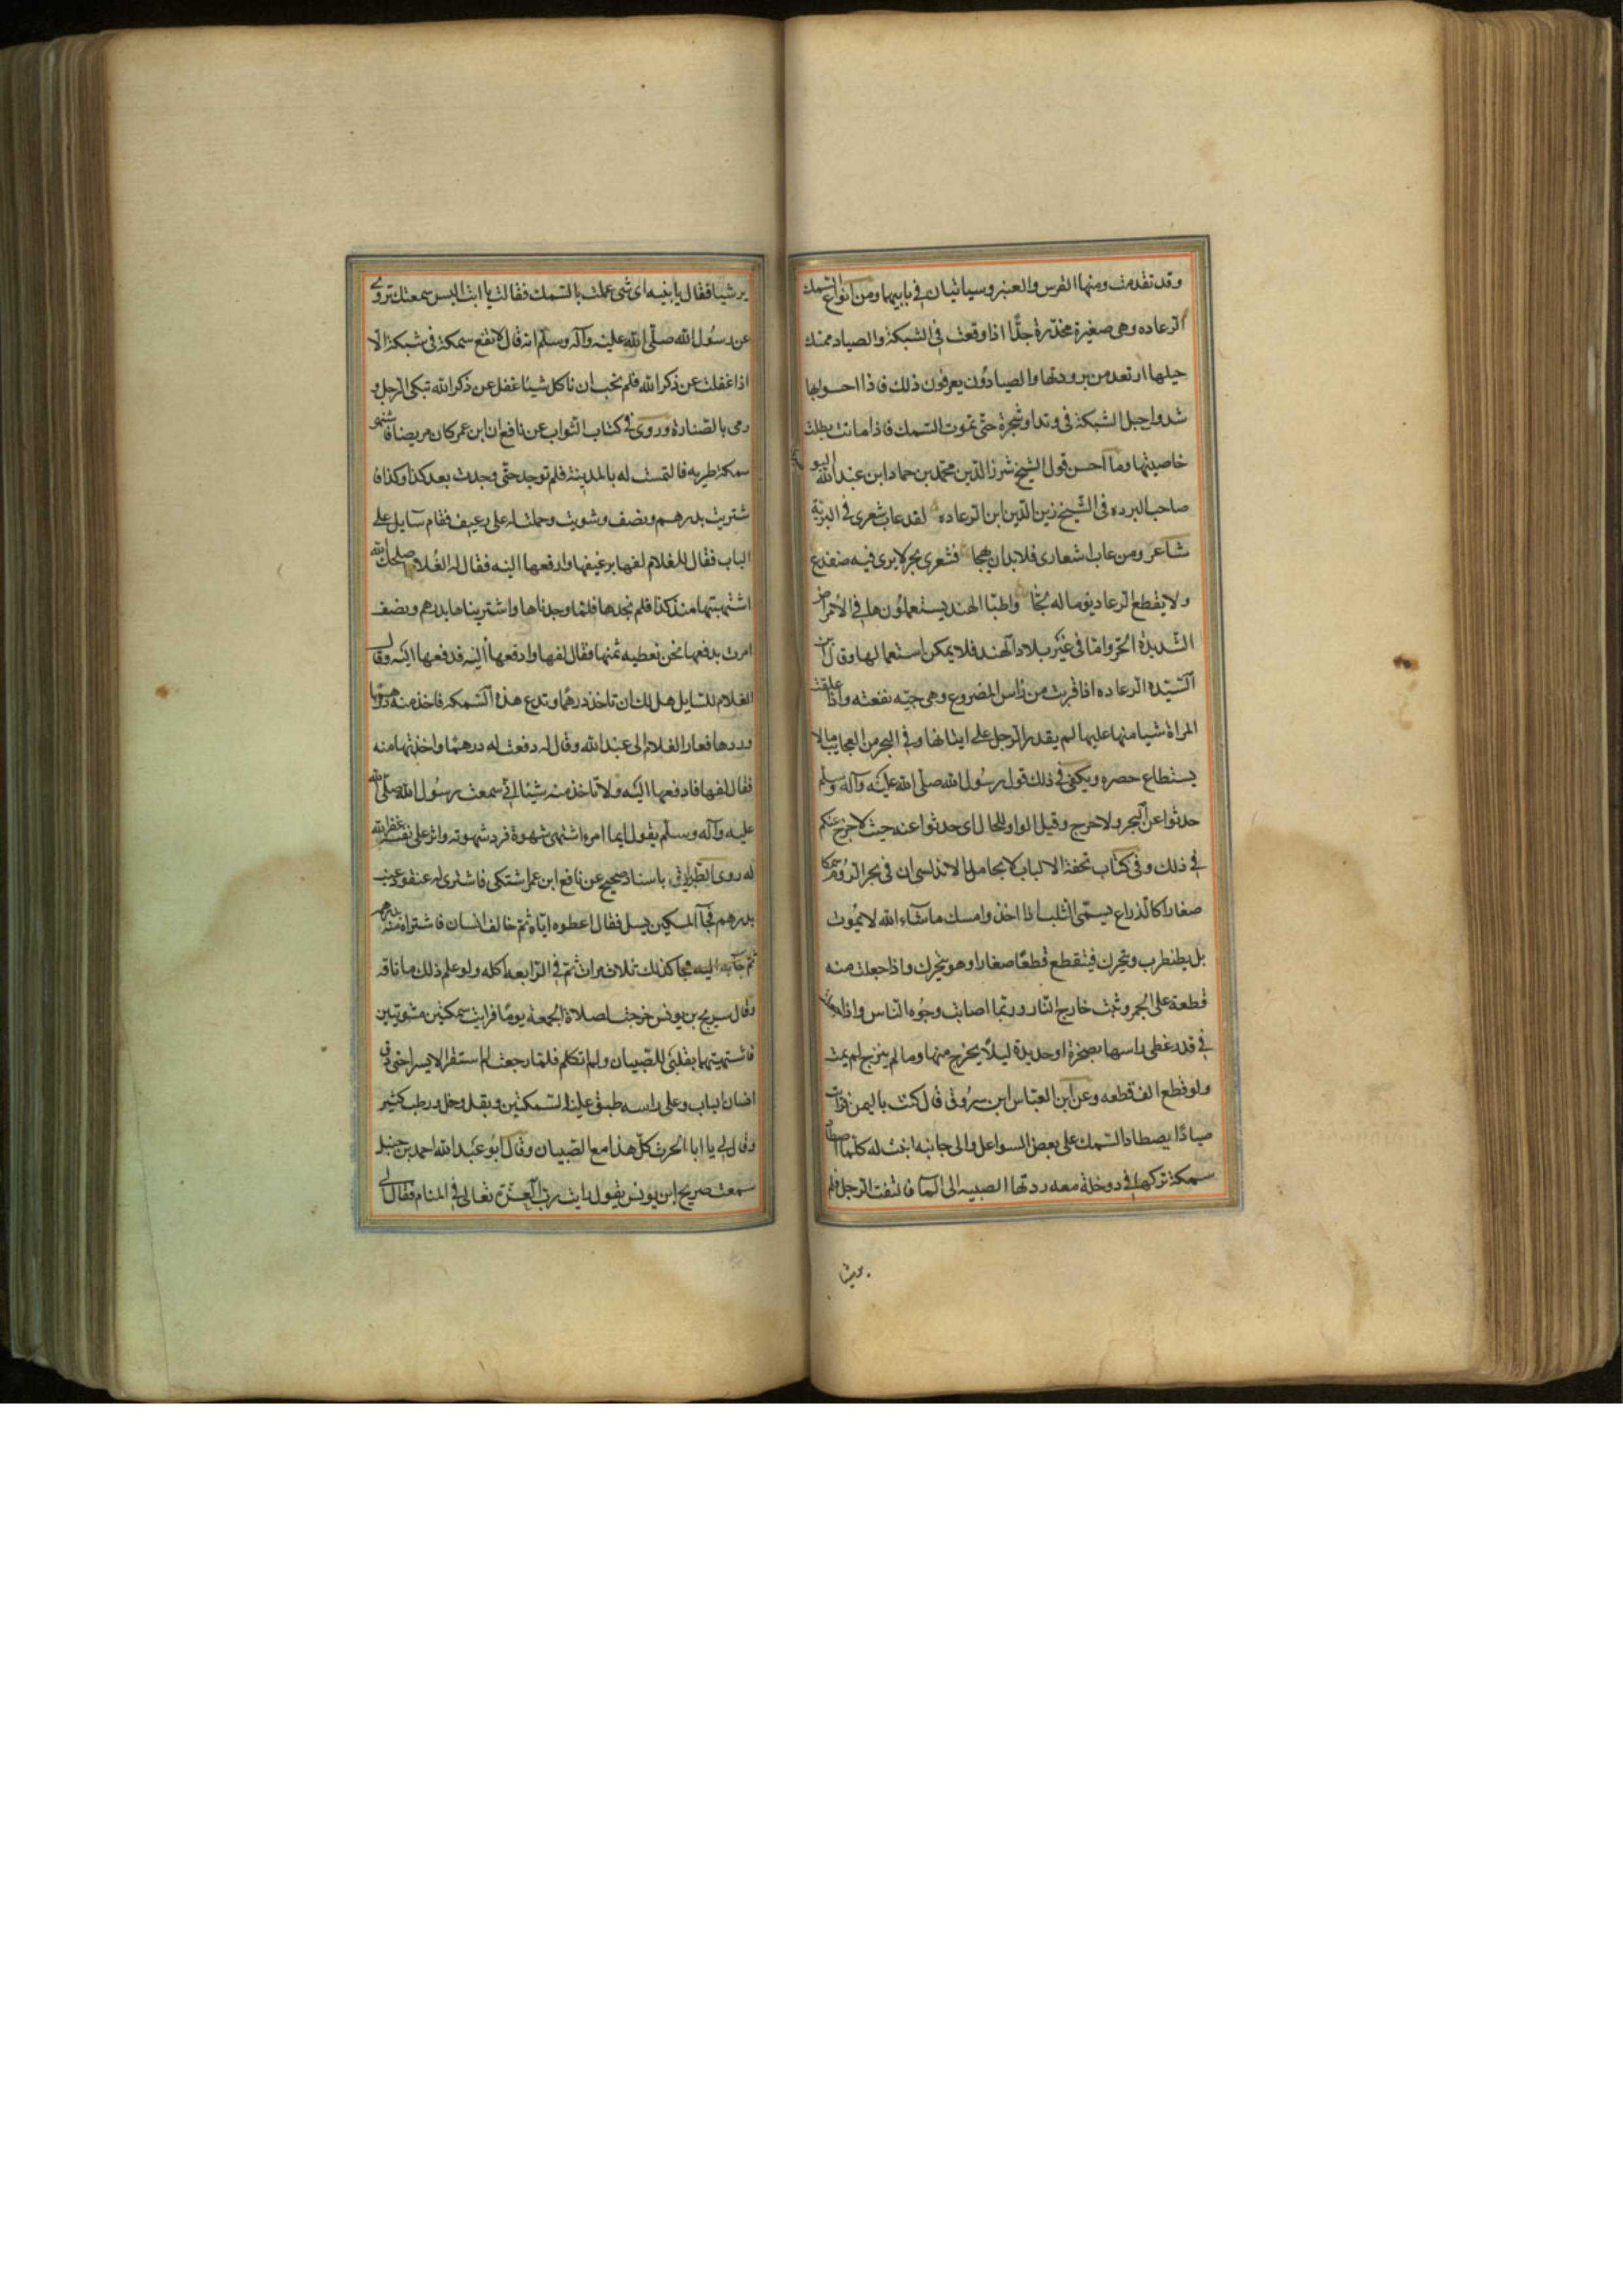 وقد تقدمت ومنها القرس والعنبر وسياتيان في بابيهما ومن انواع السمك
الرعاده وهى صغيرة مخدرة جدًّا اذا وقعت فى الشبكة والصياد ممسك
حبلها ارتعد من برودتها والصيادون يعرفون ذلك فاذا احسوا بها
شدوا حبل الشبكة فى وتد او شجرة حتّى تموت السمك فاذا ماتت بطلت
خاصيتها وما احسن قول الشيخ شرز الدين محمّد بن حماد ابن عبد الله البو
صاحب البرده فى الشيخ زين الدين ابن الرعاده لقد عاب شعرى فى البريّة
شاعر ومن عاب اشعارى فلا بد ان يهجا فشعرى بحر لا يرى فيه ضفدع
ولا يقطع الرعاد يوما له لجّا واطبّا الهند يستعملون ها فى الامراض
الشديدة الحرّ وامّا فى غير بلاد الهند فلا يمكن استعمالها وقال ابن
السّيّده الرعاده اذا قربت من راس المصروع وهى حيّه نفعته واذا علقت
المراة شيا منها عليها لم يقدر الرجل على ايتانها وفى البحر من العجايب ما لا
يستطاع حصره ويكفى فى ذلك قول رسُول الله صلّى الله عليه وآله وسلّم
حدثوا عن البحر ولا حرج وقيل الواو للحال اى حدثوا عنه حيث لا حرج عنكم
في ذلك وفى كتاب تحفة الالباب لابحامد الاندلسى ان فى بحر الروم سمكا
صغارا كالذراع يسمّى الثلب اذا اخذ وامسك ما شاء الله لا يموُت
بل يطنطرب ويتحرك فيتقطع قطعًا صغارا وهو يتحرك واذا جعلت منه
قطعة على الجمر وثبت خارج النار وربّما اصابت وجوُه الناس واذا
في قدر غطى راسها بصخرة او حديدة ليلًا يخرج منها وما لم ينزج لم يمت
ولو قطع الف قطعه وعن ابن العبّاس ابن سروُق قال كنت باليمن فرايت
صيادًا يصطاد السمك على بعض السواعل والى جانبه ابنت له كلما اصطاد
سمكة تركها فى دوخلة معه ردتها الصبيه الى الما فالتفت الرجل فلم
ير شيئا فقال يا بنيه اى شى عملت بالسمك فقالت يا ابت اليس سمعتك تروى
عن رسُول الله صلّى الله عليه وآله وسلم انه قال لا تقع سمكة فى شبكة الّا
اذا غفلت عن ذكر الله فلم نحب ان ناكل شيئا غفل عن ذكر الله تبكى الرجل و
رمى بالصنارة وروى فى كتاب الثواب عن نافع ان ابن عمر كان مريضا فاشتهى
سمكة طريه فالتمست له بالمدينة فلم توجد حتّى وجدت بعد كذا وكذا فا
شتريت بدرهم ونصف وشويت وحملت له على رغيف فقام سايل على
الباب فقال للغلام لفها برغيفها وادفعها اليه فقال له الغلام اصلحك الله
اشتهيتها منذ كذا فلم نجدها فلمّا وجدناها واشتريناها بدرهم ونصف
امرت بدفعها نحن نعطيه ثمنها فقال لفها وادفعها اليه فدفعها اليه وقال
الغلام للسايل هل لك ان تاخذ درهمًا وتدع هذه السّمكه فاخذ منه درهمًا
وردها فعاد الغلام الى عبد الله وقال له دفعت له درهمًا واخذتها منه
فقال لفها فادفعها اليه ولا تاخذ منه شيئا انى سمعت رسُول الله صلّى الله
عليه وآله وسلّم يقول ايما امرءٍ اشتهى شهوة فرد شهوته واثر على نفسه غفر الله
له روى الطّبرانى باسناد صحيح عن نافع ابن عمر اشتكى فاشترى له عنقود عنب
بدرهم فجآ المسكين يسل فقال اعطوه ايّاه ثمّ خالف انسان فاشتراه منه بدرهم
ثمّ جآ به اليه فجا كذلك ثلاث مرات ثمّ فى الرّابعه اكله ولو علم ذلك ما ذاقه
وقال سريج بن يونس خرجت لصلاة الجمعة يومًا فرايت سمكتين مشويتين
فاشتهيتهما بقلبى للصّبيان ولم اتكلم فلمّا رجعت لم استقر الا يسرا حتى دق
انسان الباب وعلى راسه طبق عليه السمكتين وبقل وخل ورطب كثير
وقال لى يا ابا الحرث كل هذا مع الصبيان وقال ابُو عبد الله احمد بن حنبل
سمعت صريج ابن يونس يقول رايت ربّ العزّة تعالى فى المنام فقال لى
ير شيا